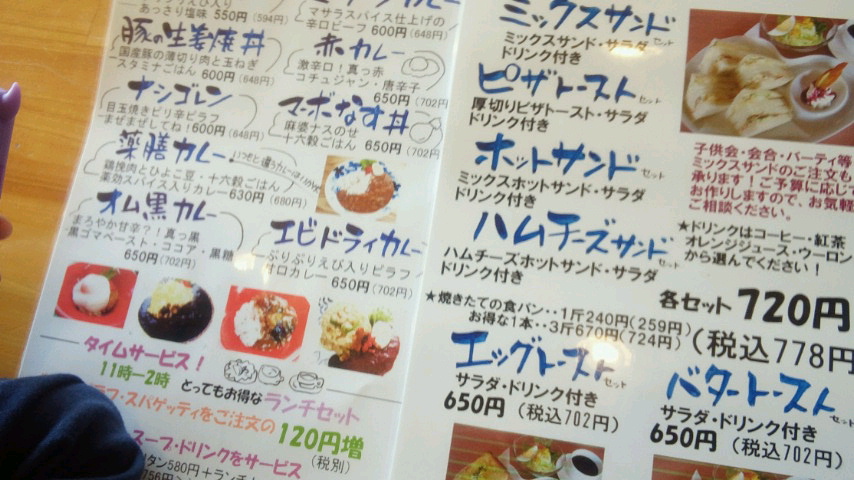 あっさり塩味 550円(594円)
豚の生姜焼丼
国産豚の薄切り肉と玉ねぎ
スタミナごはん 600円(648円)
ナシゴレン
目玉焼きピリ辛ピラフ
まぜまぜしてね!600円(648円)
薬膳カレー
鶏挽肉とひよこ豆・十六穀ごはん
薬効スパイス入りカレー 630円(680円)
オム黒カレー
まろやか甘辛?!真っ黒
黒ゴマペースト・ココア・黒糖
650円(702円)
マサラスパイス仕上げの
辛口ビーフ 600円(648円)
赤カレー
激辛口!真っ赤
コチュジャン・唐辛子
650円(702円)
マーボーなす丼
麻婆ナスのせ
十六穀ごはん 650円(702円)
エビドライカレー
ぷりぷりえび入りピラフ
サロカレー 650円(702円)
タイムサービス!
11時ー2時 とってもお得な ランチセット
ラフ・スパゲッティをご注文の 120円増
(税別)
スープ・ドリンクをサービス
リタン580円+ランチ
ミックスサンド セット
ミックスサンド・サラダ
ドリンク付き
ピザトースト セット
厚切りピザトースト・サラダ
ドリンク付き
ホットサンド セット
ミックスホットサンド・サラダ
ドリンク付き
ハムチーズサンド セット
ハムチーズホットサンド・サラダ
ドリンク付き
子供会・会合・パーティ等
ミックスサンドのご注文も
承ります!ご予算に応じて
お作りしますので、お気軽
ご相談ください。
★ドリンクはコーヒー・紅茶
オレンジジュース・ウーロン
から選んでください!
各セット 720円
(税込778円
★焼きたての食パン・・1斤240円(259円)
お得な1本・・3斤670円(724円)
エッグトースト セット
サラダ・ドリンク付き
650円 (税込702円)
バタートースト セット
サラダ・ドリンク付き
650円 (税込702円)